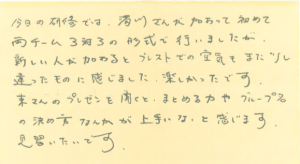 今日の研修では、滑川さんが加わって初めて
両チーム3対3の形式で行いましたが、
新しい人が加わるとブレストでの空気もまた少し
違ったものに感じました。楽しかったです。
東さんのプレゼンを聞くと、まとめる力やグループ名
の決め方なんかが上手いなと感じます。
見習いたいです。